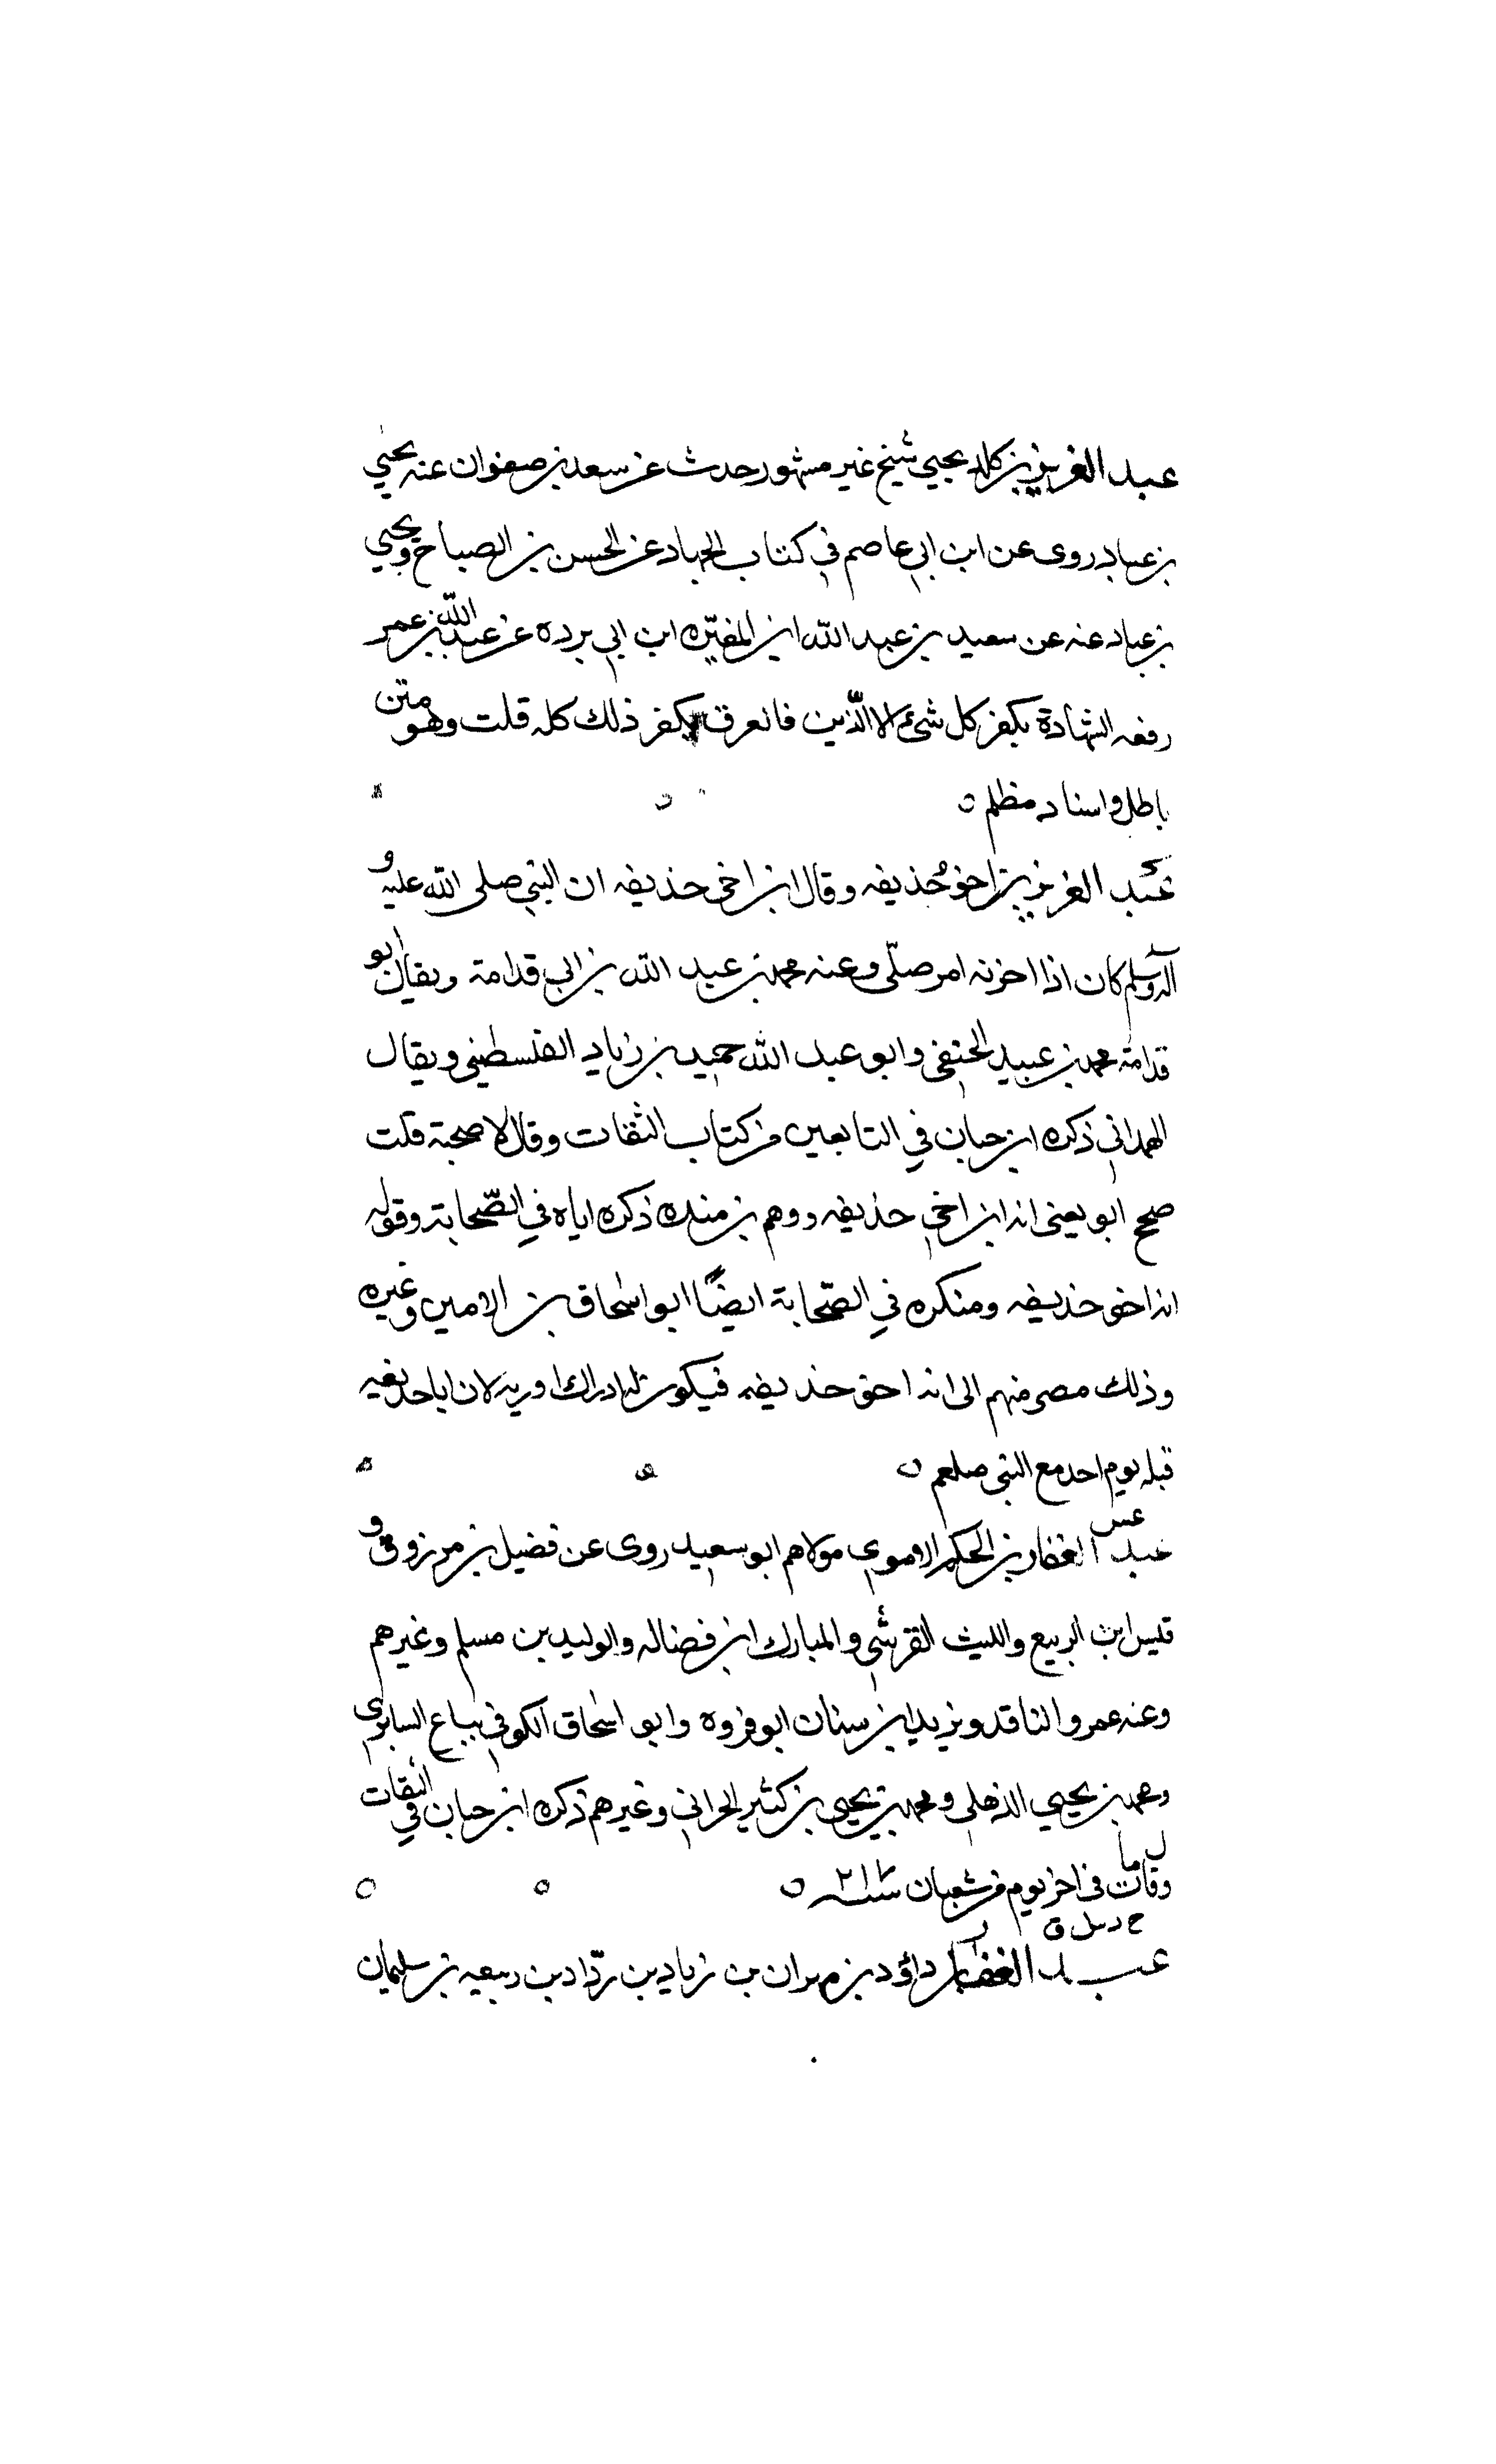 عبد العزيز بن كلاب يحيى شيخ غير مشهور حدث عن سعد بن صفوان عنه يحيى
بن عباد روى عن ابن ابي عاصم في كتاب الجهاد عن الحسن بن الصباح ويحيى
بن عباد عنه عن سعيد بن عبد الله ابن المغيره ابن ابي برده عن عبد الله بن عمر
رفعه الشهادة يكفر كل شئ الا الدّين فالغرق يكفر ذلك كله قلت وهو متن
باطل واسناد مظلم
عبد العزيز بن اخو حُذيفه وقال ابن اخي حذيفه ان النبي صلى الله عليه و
آله وسلم كان اذا احزنه امر صلّى وعنه محمد بن عبد الله بن ابي قدامة ويقال ابو
قدامة محمد بن عبيد الحنفي وابو عبد الله حميد بن زياد الفلسطيني ويقال
الهمداني ذكره ابن حبان في التابعين من كتاب الثقات وقال لا صحبة قلت
صحح ابو يعنى انه ابن اخي حذيفه ووهم بن منده ذكره اياه في الصّحابة وقوله
انه اخو حذيفه ومنكره في الصّحابة ايضًا ابو اسحاق بن الامين وغيره
وذلك مصر منهم الى انه اخو حذيفه فيكون له ادراك ورية لان ابا حذيفه
قبله يوم احد مع النبي صلعم
عس
عبد الغفار بن الحكم الاموي مولاهم ابو سعيد روى عن فضيل بن مرزوق و
قيس ابن الربيع والليث القرشي والمبارك ابن فضاله والوليد بن مسلم وغيرهم
وعنه عمرو الناقد ويزيد ابن سنان ابو فروه وابو اسحاق الكوفي بياع السابري
ومحمد بن يحيى الذهلي ومحمد بن يحيى بن كثير الحراني وغيرهم ذكره ابن حبان في الثقات
وقال مات في اخر يوم من شعبان سنة ٢١٧
ح د سل ق
عبد الغفار داؤد بن مهران بن زياد بن ردّاد بن ربيعه بن سليمان